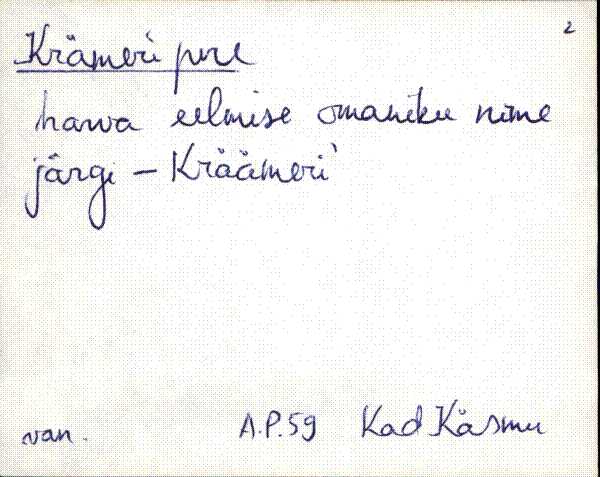 2
Krämeri puri
harva eelmise omaniku nime
järgi – Kräämeri'
van. A.P.59 Kad Käsmu